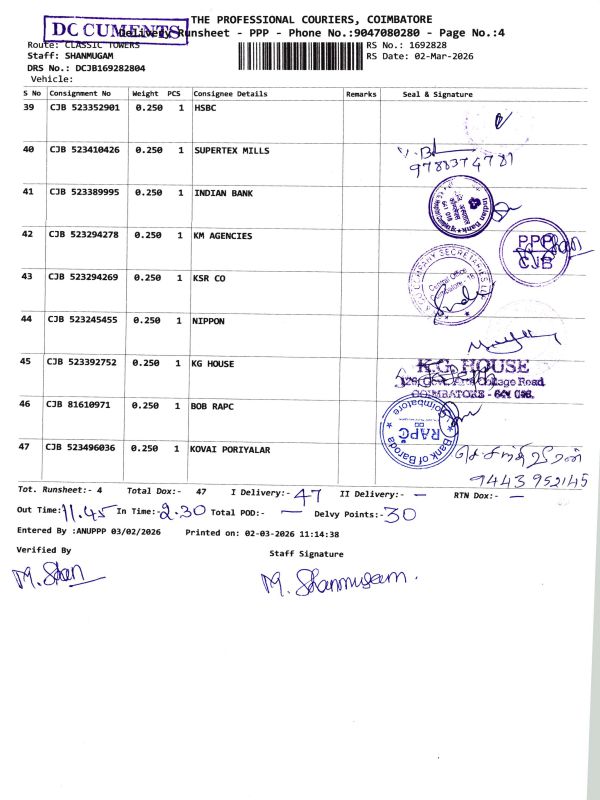 THE PROFESSIONAL COURIERS, COIMBATORE
DOCUMENTS
Delivery Runsheet - PPP - Phone No.:9047080280 - Page No.:4
Route: CLASSIC TOWERS
RS No.: 1692828
Staff: SHANMUGAM
RS Date: 02-Mar-2026
DRS No.: DCJB169282804
Vehicle:
S No Consignment No Weight PCS Consignee Details Remarks Seal & Signature
39 CJB 523352901 0.250 1 HSBC
40 CJB 523410426 0.250 1 SUPERTEX MILLS
9788374781
41 CJB 523389995 0.250 1 INDIAN BANK
Indian Bank
42 CJB 523294278 0.250 1 KM AGENCIES
PPP
CJB
43 CJB 523294269 0.250 1 KSR CO
COMPANY SECRETARIES LLP
Central Office
44 CJB 523245455 0.250 1 NIPPON
45 CJB 523392752 0.250 1 KG HOUSE
K.G. HOUSE
Arts College Road
COIMBATORE - 641 018.
46 CJB 81610971 0.250 1 BOB RAPC
Bank of Baroda
RAPC
Coimbatore
47 CJB 523496036 0.250 1 KOVAI PORIYALAR
9443952145
Tot. Runsheet:- 4 Total Dox:- 47 I Delivery:- 47 II Delivery:- — RTN Dox:- —
Out Time: 11.45 In Time:- 2.30 Total POD:- — Delvy Points:- 30
Entered By :ANUPPP 03/02/2026 Printed on: 02-03-2026 11:14:38
Verified By
Staff Signature
M. Shan
M. Shanmugam.